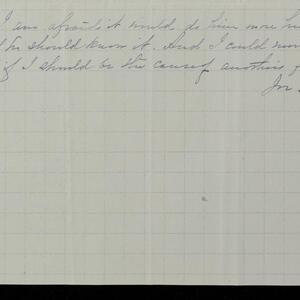 I am afraid it would do him more
if he should know it. And I could
if I should be the cause of another's